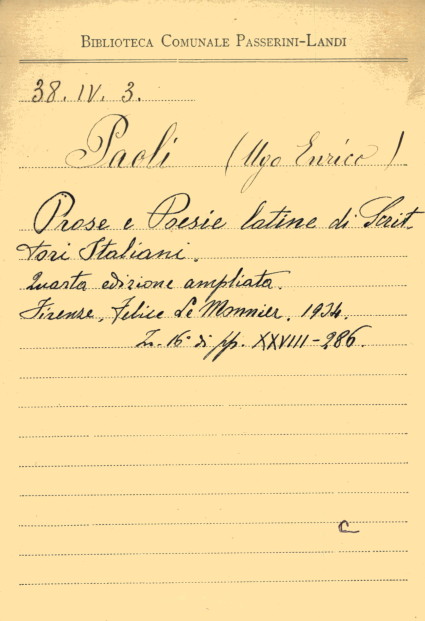 BIBLIOTECA COMUNALE PASSERINI-LANDI
38. IV. 3.
Paoli (Ugo Enrico)
Prose e Poesie latine di Scrit-
tori Italiani.
Quarta edizione ampliata.
Firenze, Felice Le Monnier. 1934.
In 16° di pp. XXVIII-286.
C